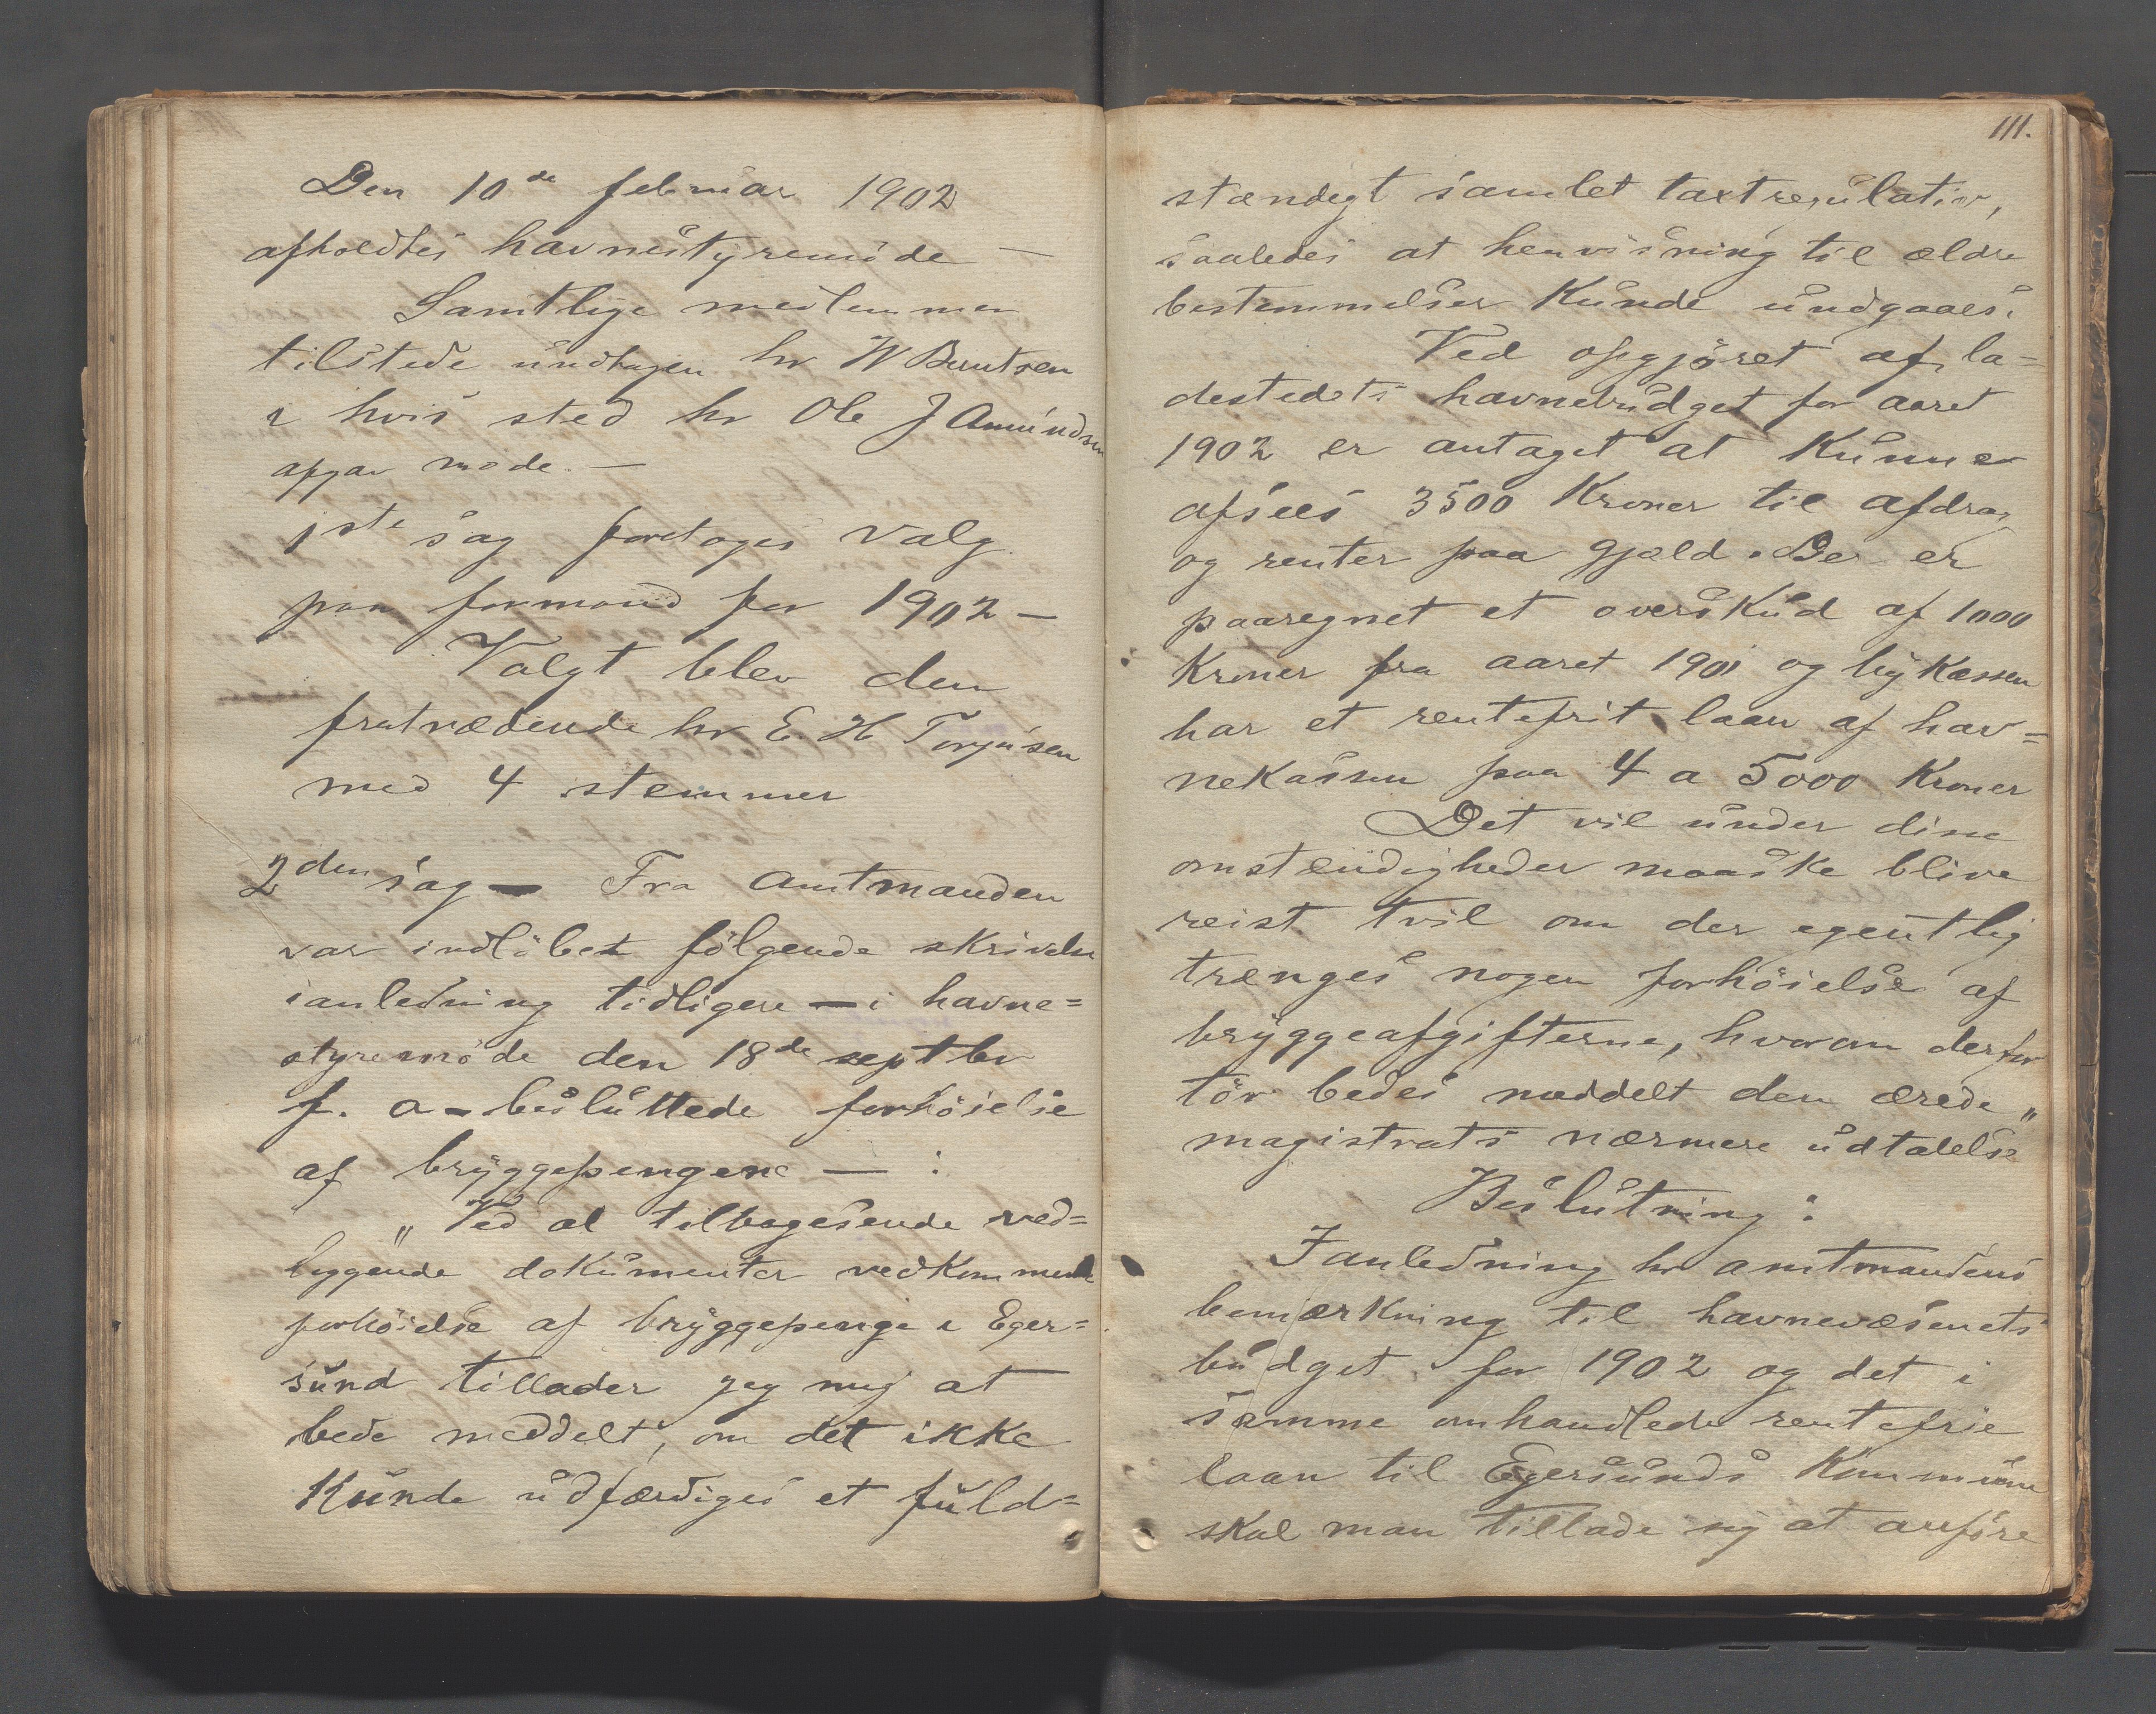 Den 10de februar 1902
afholdtes havnestyremøde —
Samtlige medlemmer
tilstede undtagen hr W Berntsen
i hvis sted hr Ole J Amundsen
afgav møde. —
1ste sag foretoges valg
paa formand for 1902 —
Valgt blev den
fratrædende hr E. H Torjusen
med 4 stemmer
2den sag — Fra Amtmanden
var indløbet følgende skrivelse
ianledning tidligere — i havne=
styremøde den 18de septbr
f. a — besluttede forhøielse
af bryggepengene — :
„ Ved at tilbagesende ved=
liggende dokumenter vedkommende
forhøielse af bryggepenge i Eger=
sund tillader jeg mig at
bede meddelt, om det ikke
kunde udfærdiges et fuld=
111.
stændigt samlet taxtregulativ,
saaledes at henvisning til ældre
bestemmelser kunde undgaaes.
Ved opgjøret af la=
destedets havnebudget for aaret
1902 er antaget at kunne
afsees 3500 Kroner til afdrag
og renter paa gjæld. Der er
paaregnet et overskud af 1000
Kroner fra aaret 1901 og bykassen
har et rentefrit laan af hav=
nekassen paa 4 a 5000 Kroner
Det vil under disse
omstændigheder maaske blive
reist tvil om der egentlig
trænges nogen forhøielse af
bryggeafgifterne, hvorom derfor
tør bedes meddelt den ærede
magistrats nærmere udtalelse"
Beslutning:
Ianledning hr amtmandens
bemærkning til havnevæsenets
budget for 1902 og det i
samme omhandlede rentefrie
laan til Egersunds Kommune
skal man tillade sig at anføre